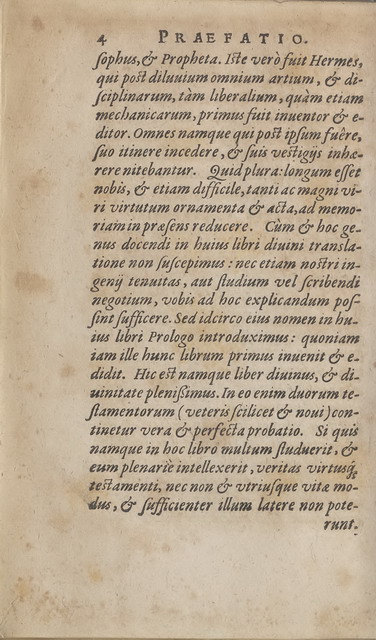 4 PRAEFATIO.
sophus, & Propheta. Iste verò fuit Hermes,
qui post diluuium omnium artium, & di-
sciplinarum, tàm liberalium, quàm etiam
mechanicarum, primus fuit inuentor & e-
ditor. Omnes namque qui post ipsum fuêre,
suo itinere incedere, & suis vestigijs inhæ-
rere nitebantur. Quid plura: longum esset
nobis, & etiam difficile, tanti ac magni vi-
ri virtutum ornamenta & acta, ad memo-
riam in præsens reducere. Cùm & hoc ge-
nus docendi in huius libri diuini transla-
tione non suscepimus: nec etiam nostri in-
genij tenuitas, aut studium vel scribendi
negotium, vobis ad hoc explicandum pos-
sint sufficere. Sed idcirco eius nomen in hu-
ius libri Prologo introduximus: quoniam
iam ille hunc librum primus inuenit & e-
didit. Hic est namque liber diuinus, & di-
uinitate plenißimus. In eo enim duorum te-
stamentorum (veteris scilicet & noui) con-
tinetur vera & perfecta probatio. Si quis
namque in hoc libro multum studuerit, &
eum plenariè intellexerit, veritas virtusq́;
testamenti, nec non & vtriusque vitæ mo-
dus, & sufficienter illum latere non pote-
runt.